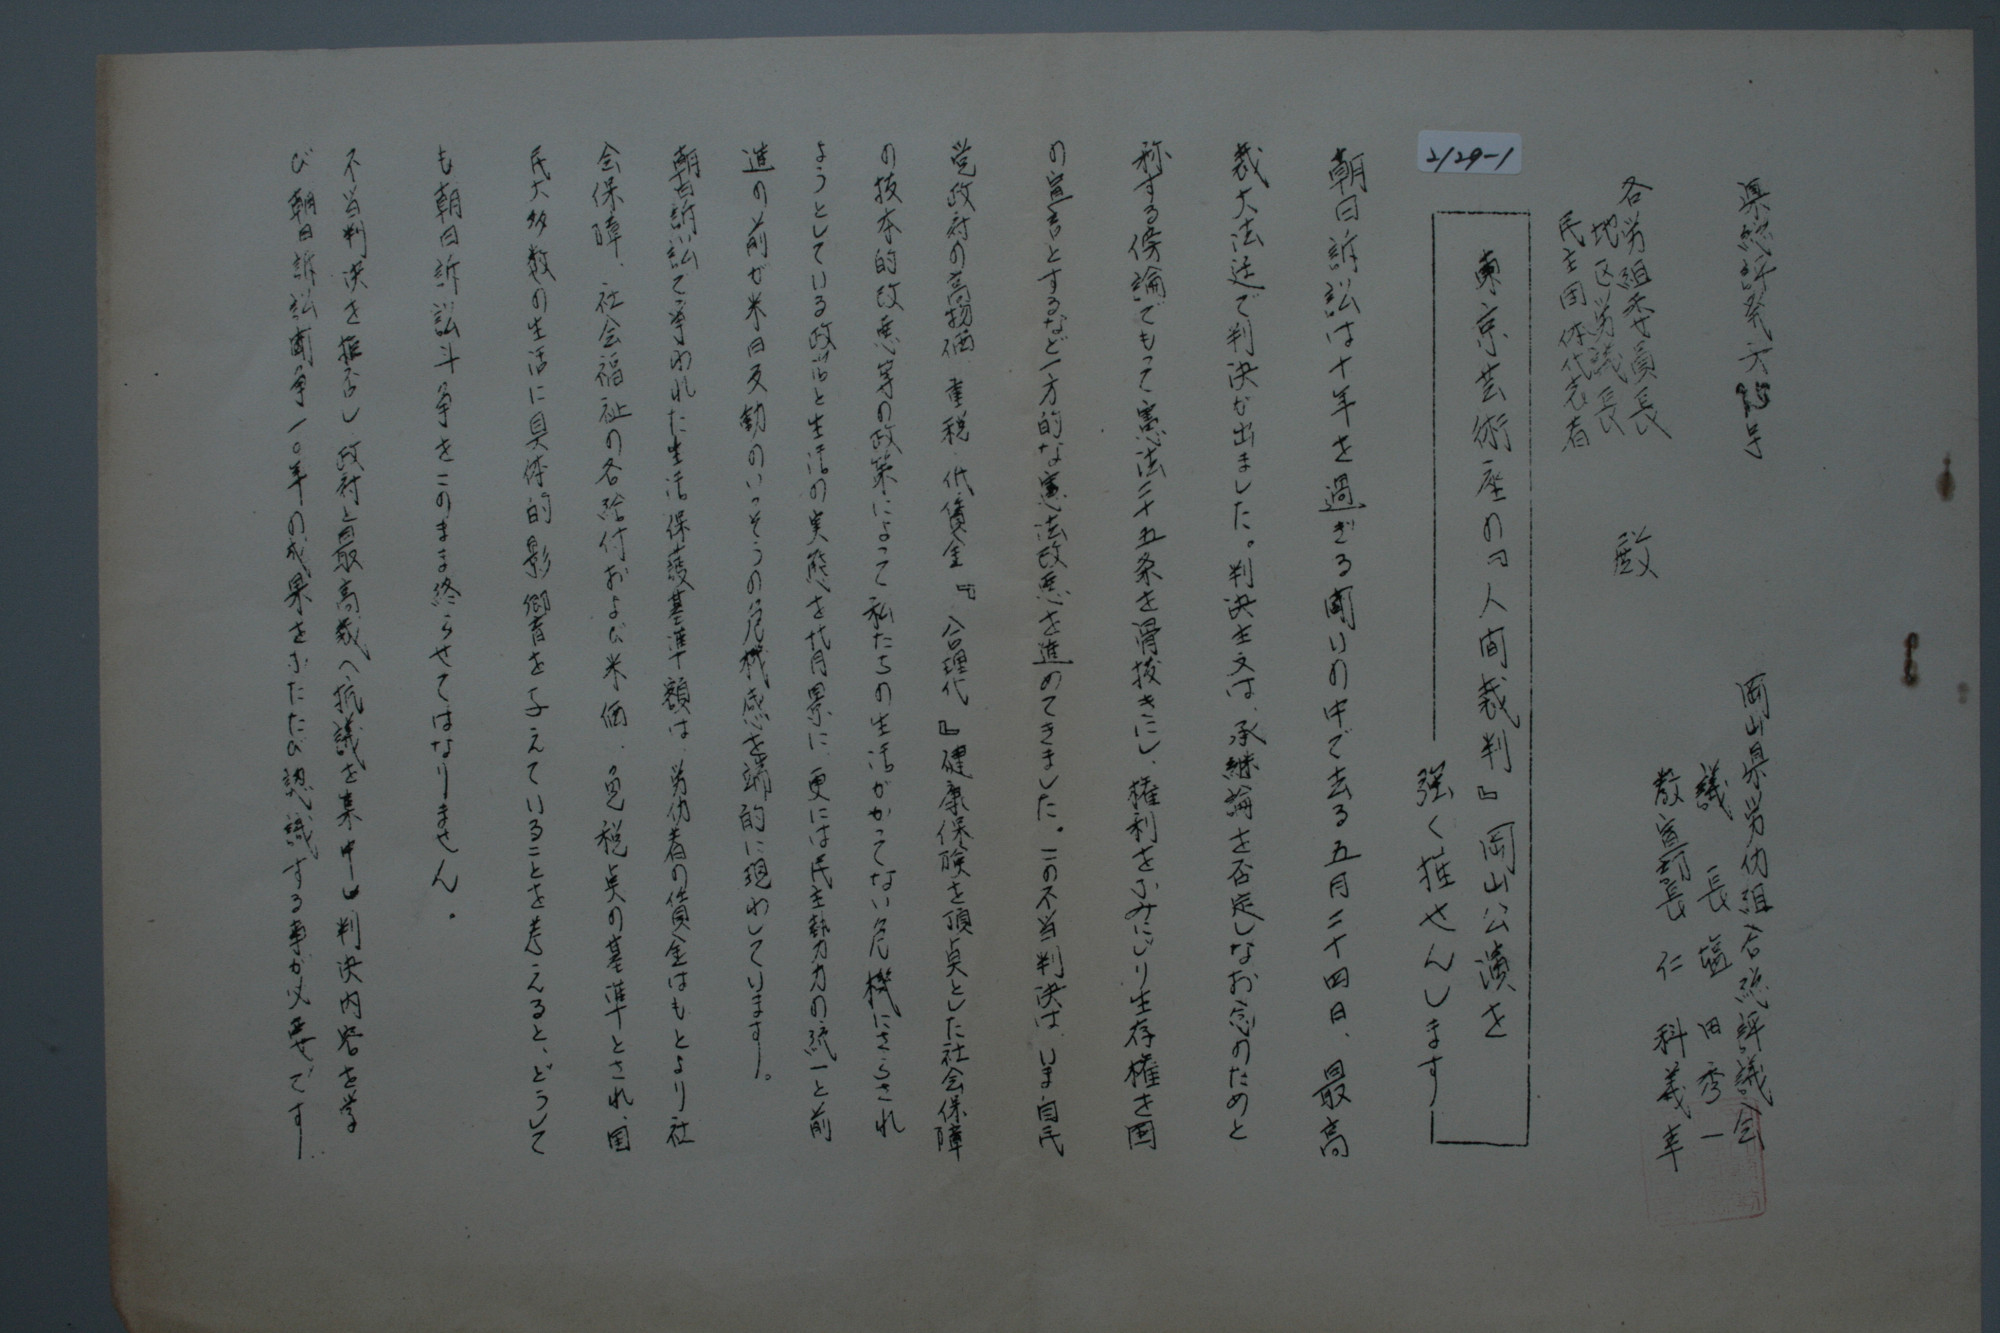 県総評発六号
岡山県労仂組合総評議会
議長 塩田秀一
教宣部長 仁科義幸
各労組委員長
地区労議長
民主団体代表者
殿
東京芸術座の『人間裁判』岡山公演を
強く推せんします
2129-1
朝日訴訟は十年を過ぎる闘いの中で去る五月二十四日、最高
裁大法廷で判決が出ました。判決主文は、承継論を否定しなお念のためと
称する傍論でもって憲法二十五条を骨抜きにし、権利をふみにじり生存権を国
の宣言とするなど一方的な憲法改悪を進めてきました。この不当判決は、いま自民
党政府の高物価、重税、低賃金『合理化』健康保険を頂点とした社会保障
の抜本的改悪等の政策によって私たちの生活がかつてない危機にさらされ
ようとしている政治と生活の実態を背景に、更には民主勢力の統一と前
進の前が米日反動のいっそうの危機感を端的に現わしています。
朝日訴訟で争われた生活保護基準額は、労仂者の賃金はもとより社
会保障、社会福祉の各給付および米価、免税点の基準とされ、国
民大多数の生活に具体的影響を与えていることを考えると、どうして
も朝日訴訟斗争をこのまま終らせてはなりません。
不当判決を拒否し政府と最高裁へ抗議を集中し判決内容を学
び朝日訴訟闘争一〇年の成果をふたたび認識する事が必要です。